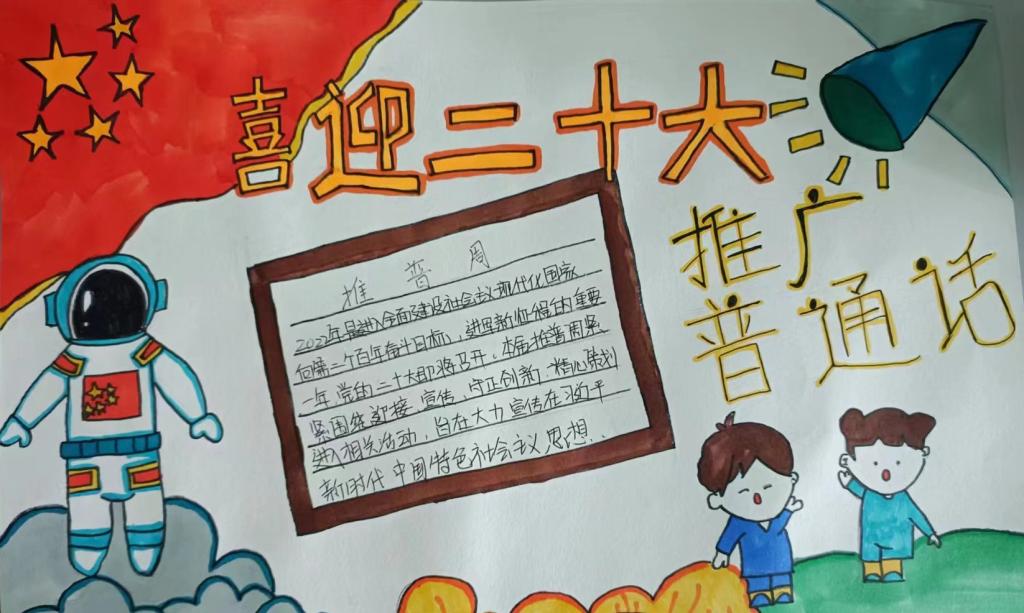 喜迎二十大
推广
普通话
推普周
2022年是进入全面建设社会主义现代化国家
向第二个百年奋斗目标，进军新征程的重要
一年，党的二十大即将召开，本届推普周紧
紧围绕迎接、宣传、守正创新，精心策划
进入相关活动，旨在大力宣传在习近平
新时代中国特色社会主义思想...